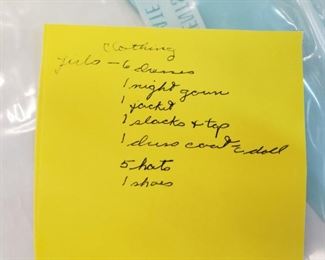 clothing
girls - 6 dresses
1 night gown
1 jacket
1 slacks & top
1 dress coat & doll
5 hats
1 shoes